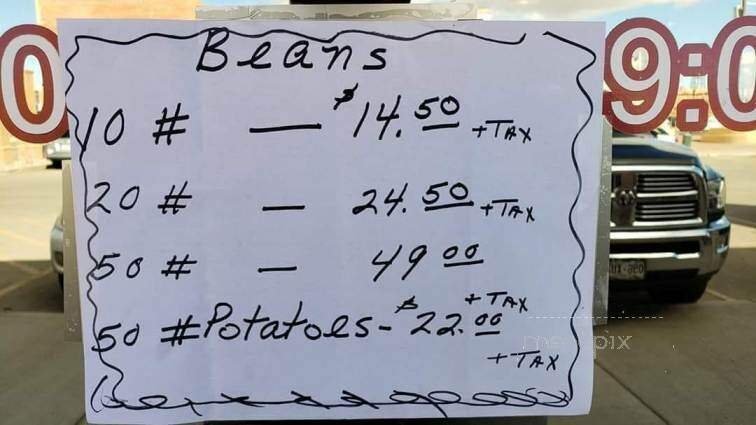 Beans
10 # — $14.50 +TAX
20 # — 24.50 +TAX
50 # — 49 00 + TAX
50 # Potatoes - $22.00 + TAX
0
9:0